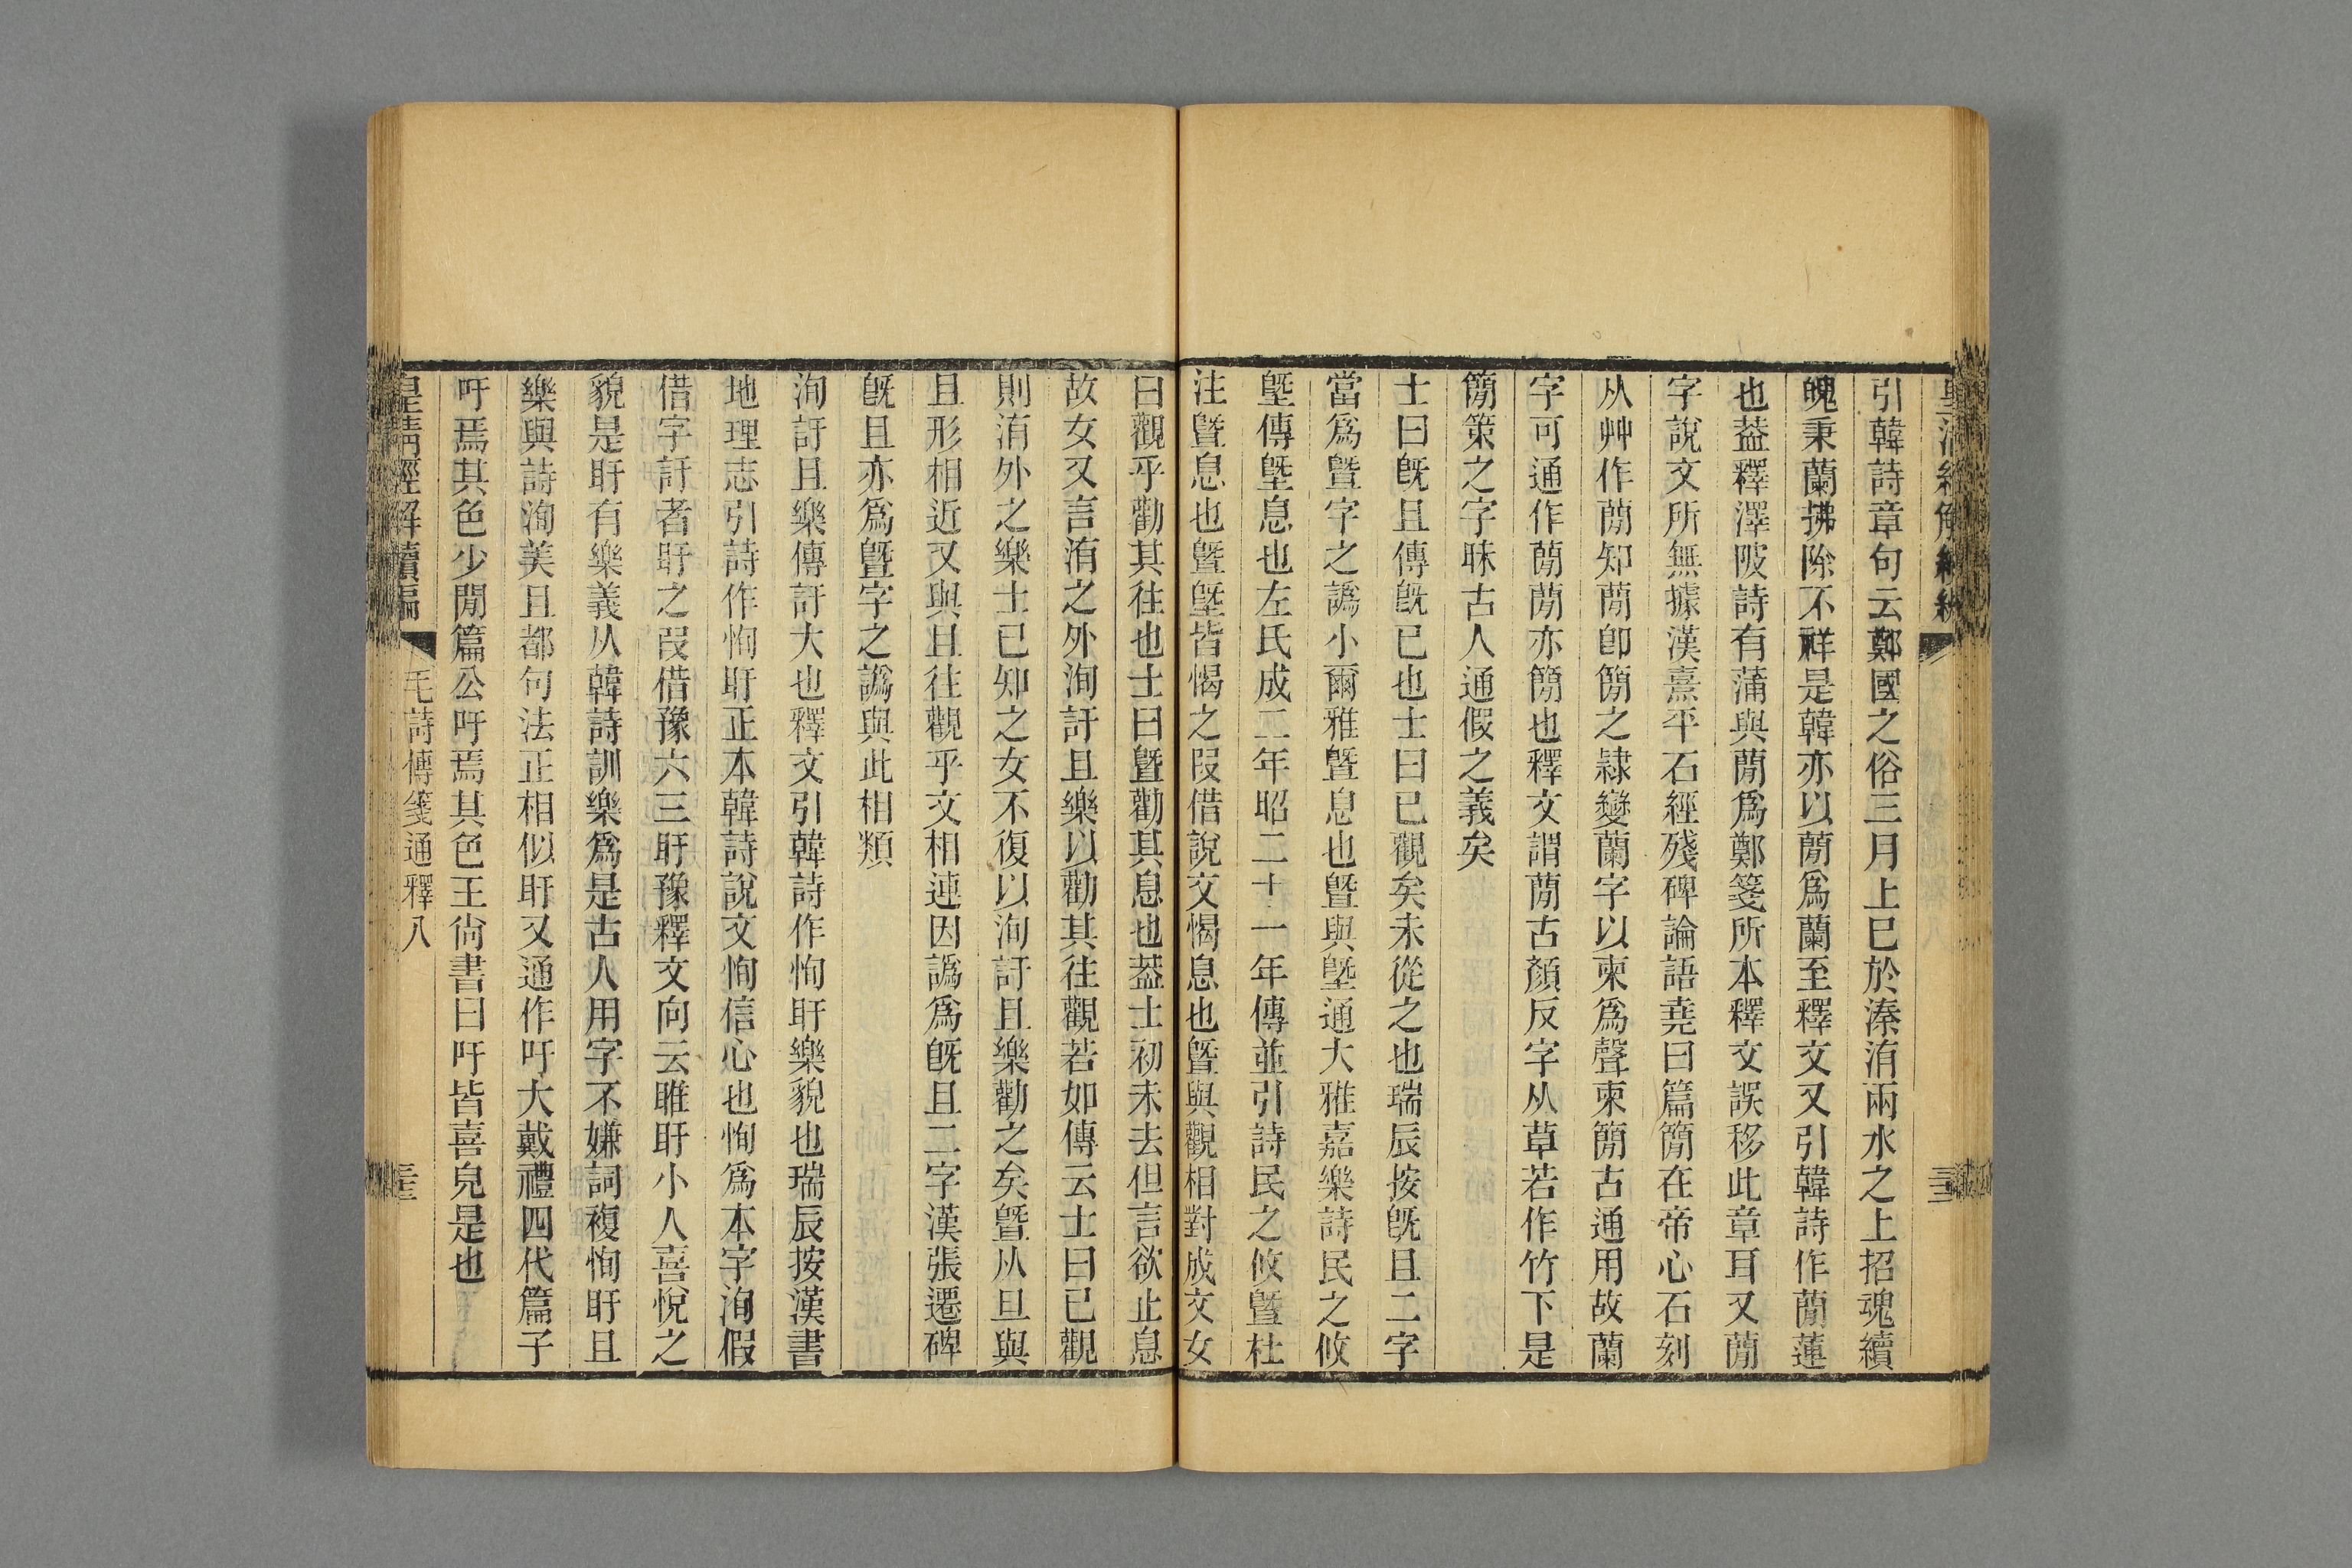 引韓詩章句云鄭國之俗三月上巳於溱洧兩水之上招魂續
魄秉蘭拂除不祥是韓亦以蕳爲蘭至釋文又引韓詩作蕳蓮
也葢釋澤陂詩有蒲與蕳爲鄭箋所本釋文誤移此章耳又蕳
字說文所無據漢熹平石經殘碑論語堯曰篇簡在帝心石刻
从艸作蕳知蕳卽簡之隷變蘭字以柬爲聲柬簡古通用故蘭
字可通作蕳蕳亦簡也釋文謂蕳古顏反字从草若作竹下是
簡策之字昧古人通假之義矣
士曰旣且傳旣已也士曰已觀矣未從之也瑞辰按旣且二字
當爲曁字之譌小爾雅曁息也曁與墍通大雅嘉樂詩民之攸
墍傳墍息也左氏成二年昭二十一年傳並引詩民之攸曁杜
注曁息也曁墍皆愒之叚借說文愒息也曁與觀相對成文女
曰觀乎勸其往也士曰曁勸其息也葢士初未去但言欲止息
故女又言洧之外洵訏且樂以勸其往觀若如傳云士曰已觀
則洧外之樂士已知之女不復以洵訏且樂勸之矣曁从旦與
且形相近又與且往觀乎文相連因譌爲旣且二字漢張遷碑
旣且亦爲曁字之譌與此相類
洵訏且樂傳訏大也釋文引韓詩作恂盱樂貌也瑞辰按漢書
地理志引詩作恂盱正本韓詩說文恂信心也恂爲本字洵假
借字訏者盱之叚借豫六三盱豫釋文向云睢盱小人喜悅之
貌是盱有樂義从韓詩訓樂爲是古人用字不嫌詞複恂盱且
樂與詩洵美且都句法正相似盱又通作吁大戴禮四代篇子
吁焉其色少閒篇公吁焉其色王尙書曰吁皆喜皃是也
皇淸經解續編
毛詩傳箋通釋八